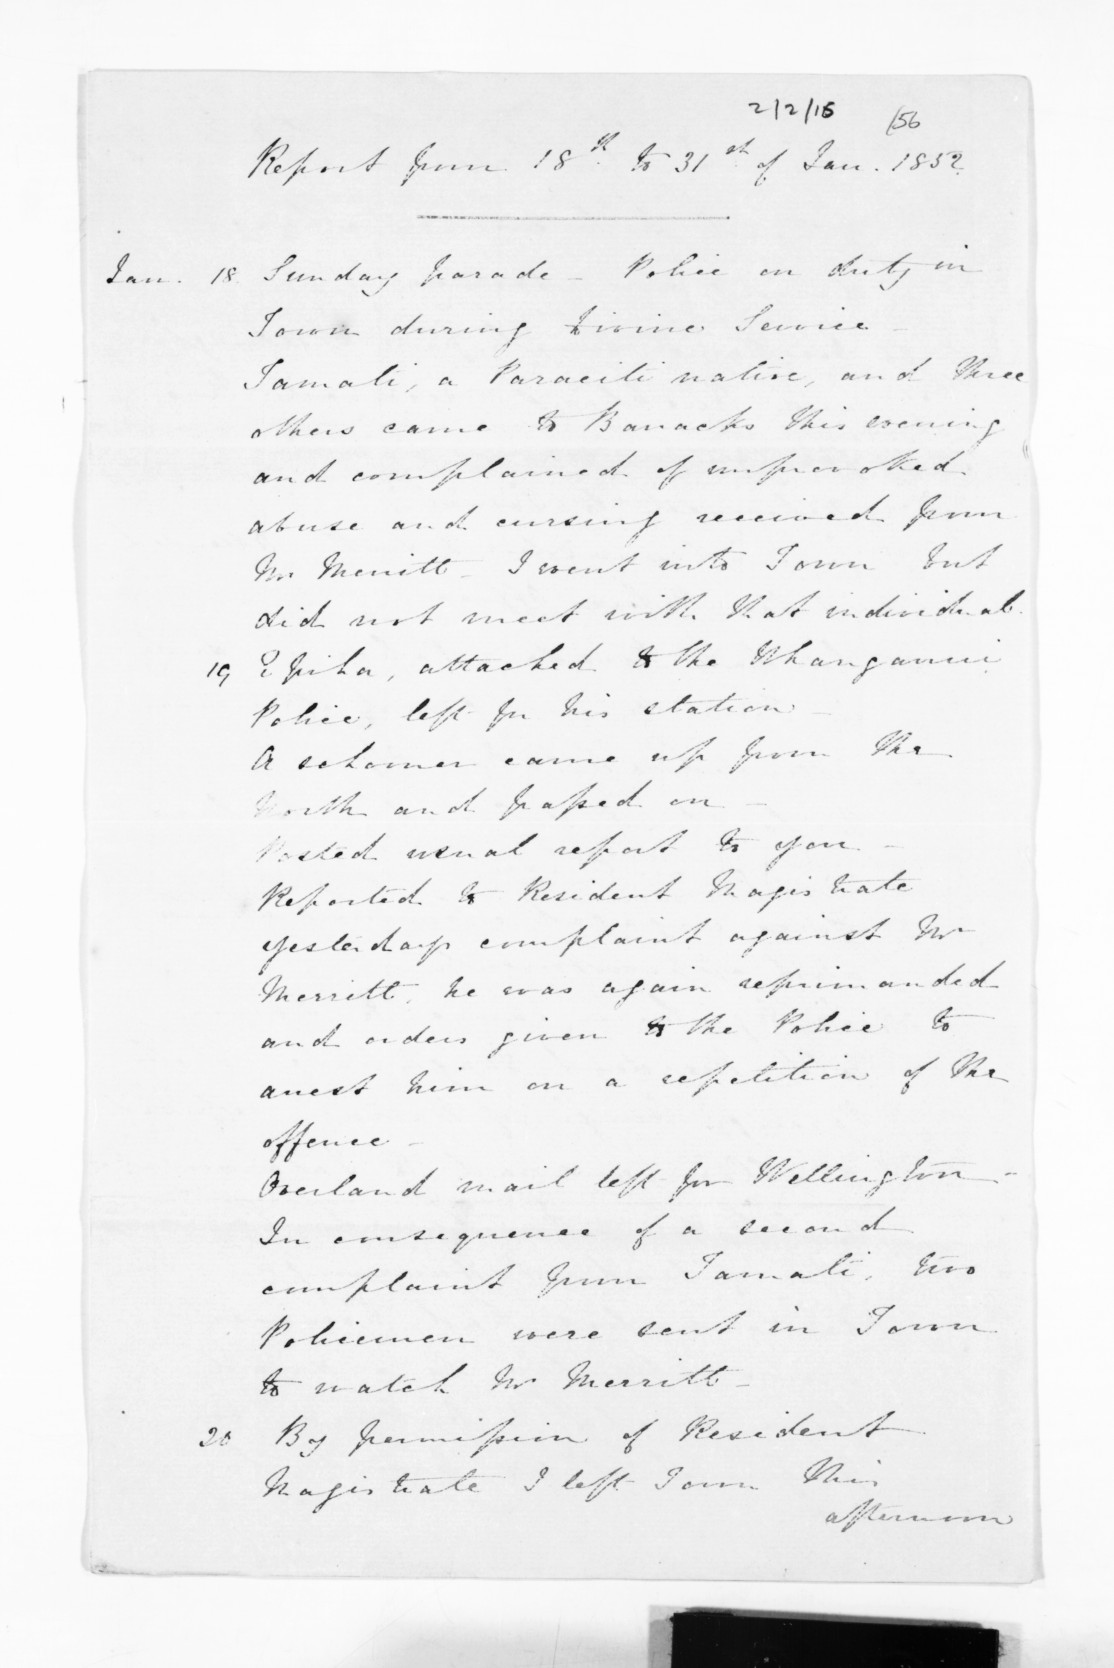 2/2/16 156
Report from 18th to 31st of Jan. 1852
Jan. 18 Sunday parade - Police on duty in
Town during Divine Service -
Tamati, a Paraciti native, and three
others came to Barracks this evening
and complained of unprovoked
abuse and cursing received from
Mr Merritt - I went into Town but
did not meet with that individual.
19 Epiha, attached to the Whanganui
Police, left for his station -
A schooner came up from the
North and passed on -
Posted usual report to you -
Reported to Resident Magistrate
yesterdays complaint against Mr
Merritt, he was again reprimanded
and orders given to the Police to
arrest him on a repetition of the
offence -
Overland mail left for Wellington -
In consequence of a second
complaint from Tamati, two
Policemen were sent in Town
to watch Mr Merritt -
20 By permission of Resident
Magistrate I left Town this
afternoon